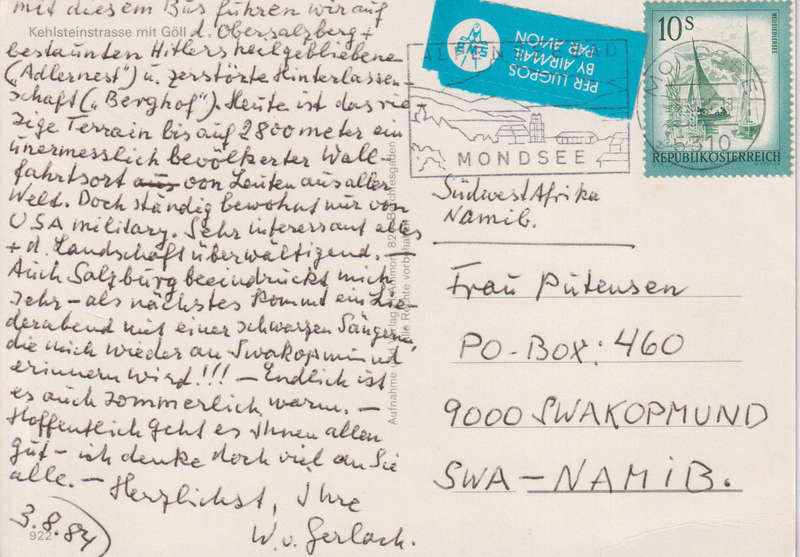 mit diesem Bus führen wir auf
Kehlsteinstrasse mit Göll
d. Obersalzberg +
bestaunten Hitlers heilgebliebene
(„Adlernest“) u. zerstörte Hinterlassen-
schaft („Berghof“). Heute ist das rie-
zige Terrain bis auf 2800 meter ein
unermesslich bevölkerter Wall-
fahrtsort aus von Leuten aus aller
Welt. Doch ständig bewohnt nur von
USA military. Sehr interessant alles
+ d. Landschaft überwältigend. —
Auch Salzburg beeindruckt mich
sehr – als nächstes kommt ein Lie-
derabend mit einer schwarzen Sängerin,
die mich wieder an Swakopmund
erinnern wird!!! — Endlich ist
es auch sommerlich warm. —
Hoffentlich geht es Ihnen allen
gut – ich denke doch viel an Sie
alle. — Herzlichst, Ihre
W. v. Gerlach.
3.8.84
922
Aufnahme
Alle Rechte vorbehalten
PER LUGPOS
BY AIRMAIL
PAR AVION
MONDSEE
10 S
REPUBLIK ÖSTERREICH
5310
Südwest Afrika
Namib.
Frau Pütensen
PO-Box: 460
9000 SWAKOPMUND
SWA – NAMIB.